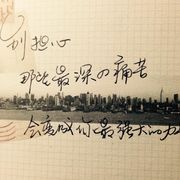 别担心
那些最深的痛苦
会变成你最强大的力